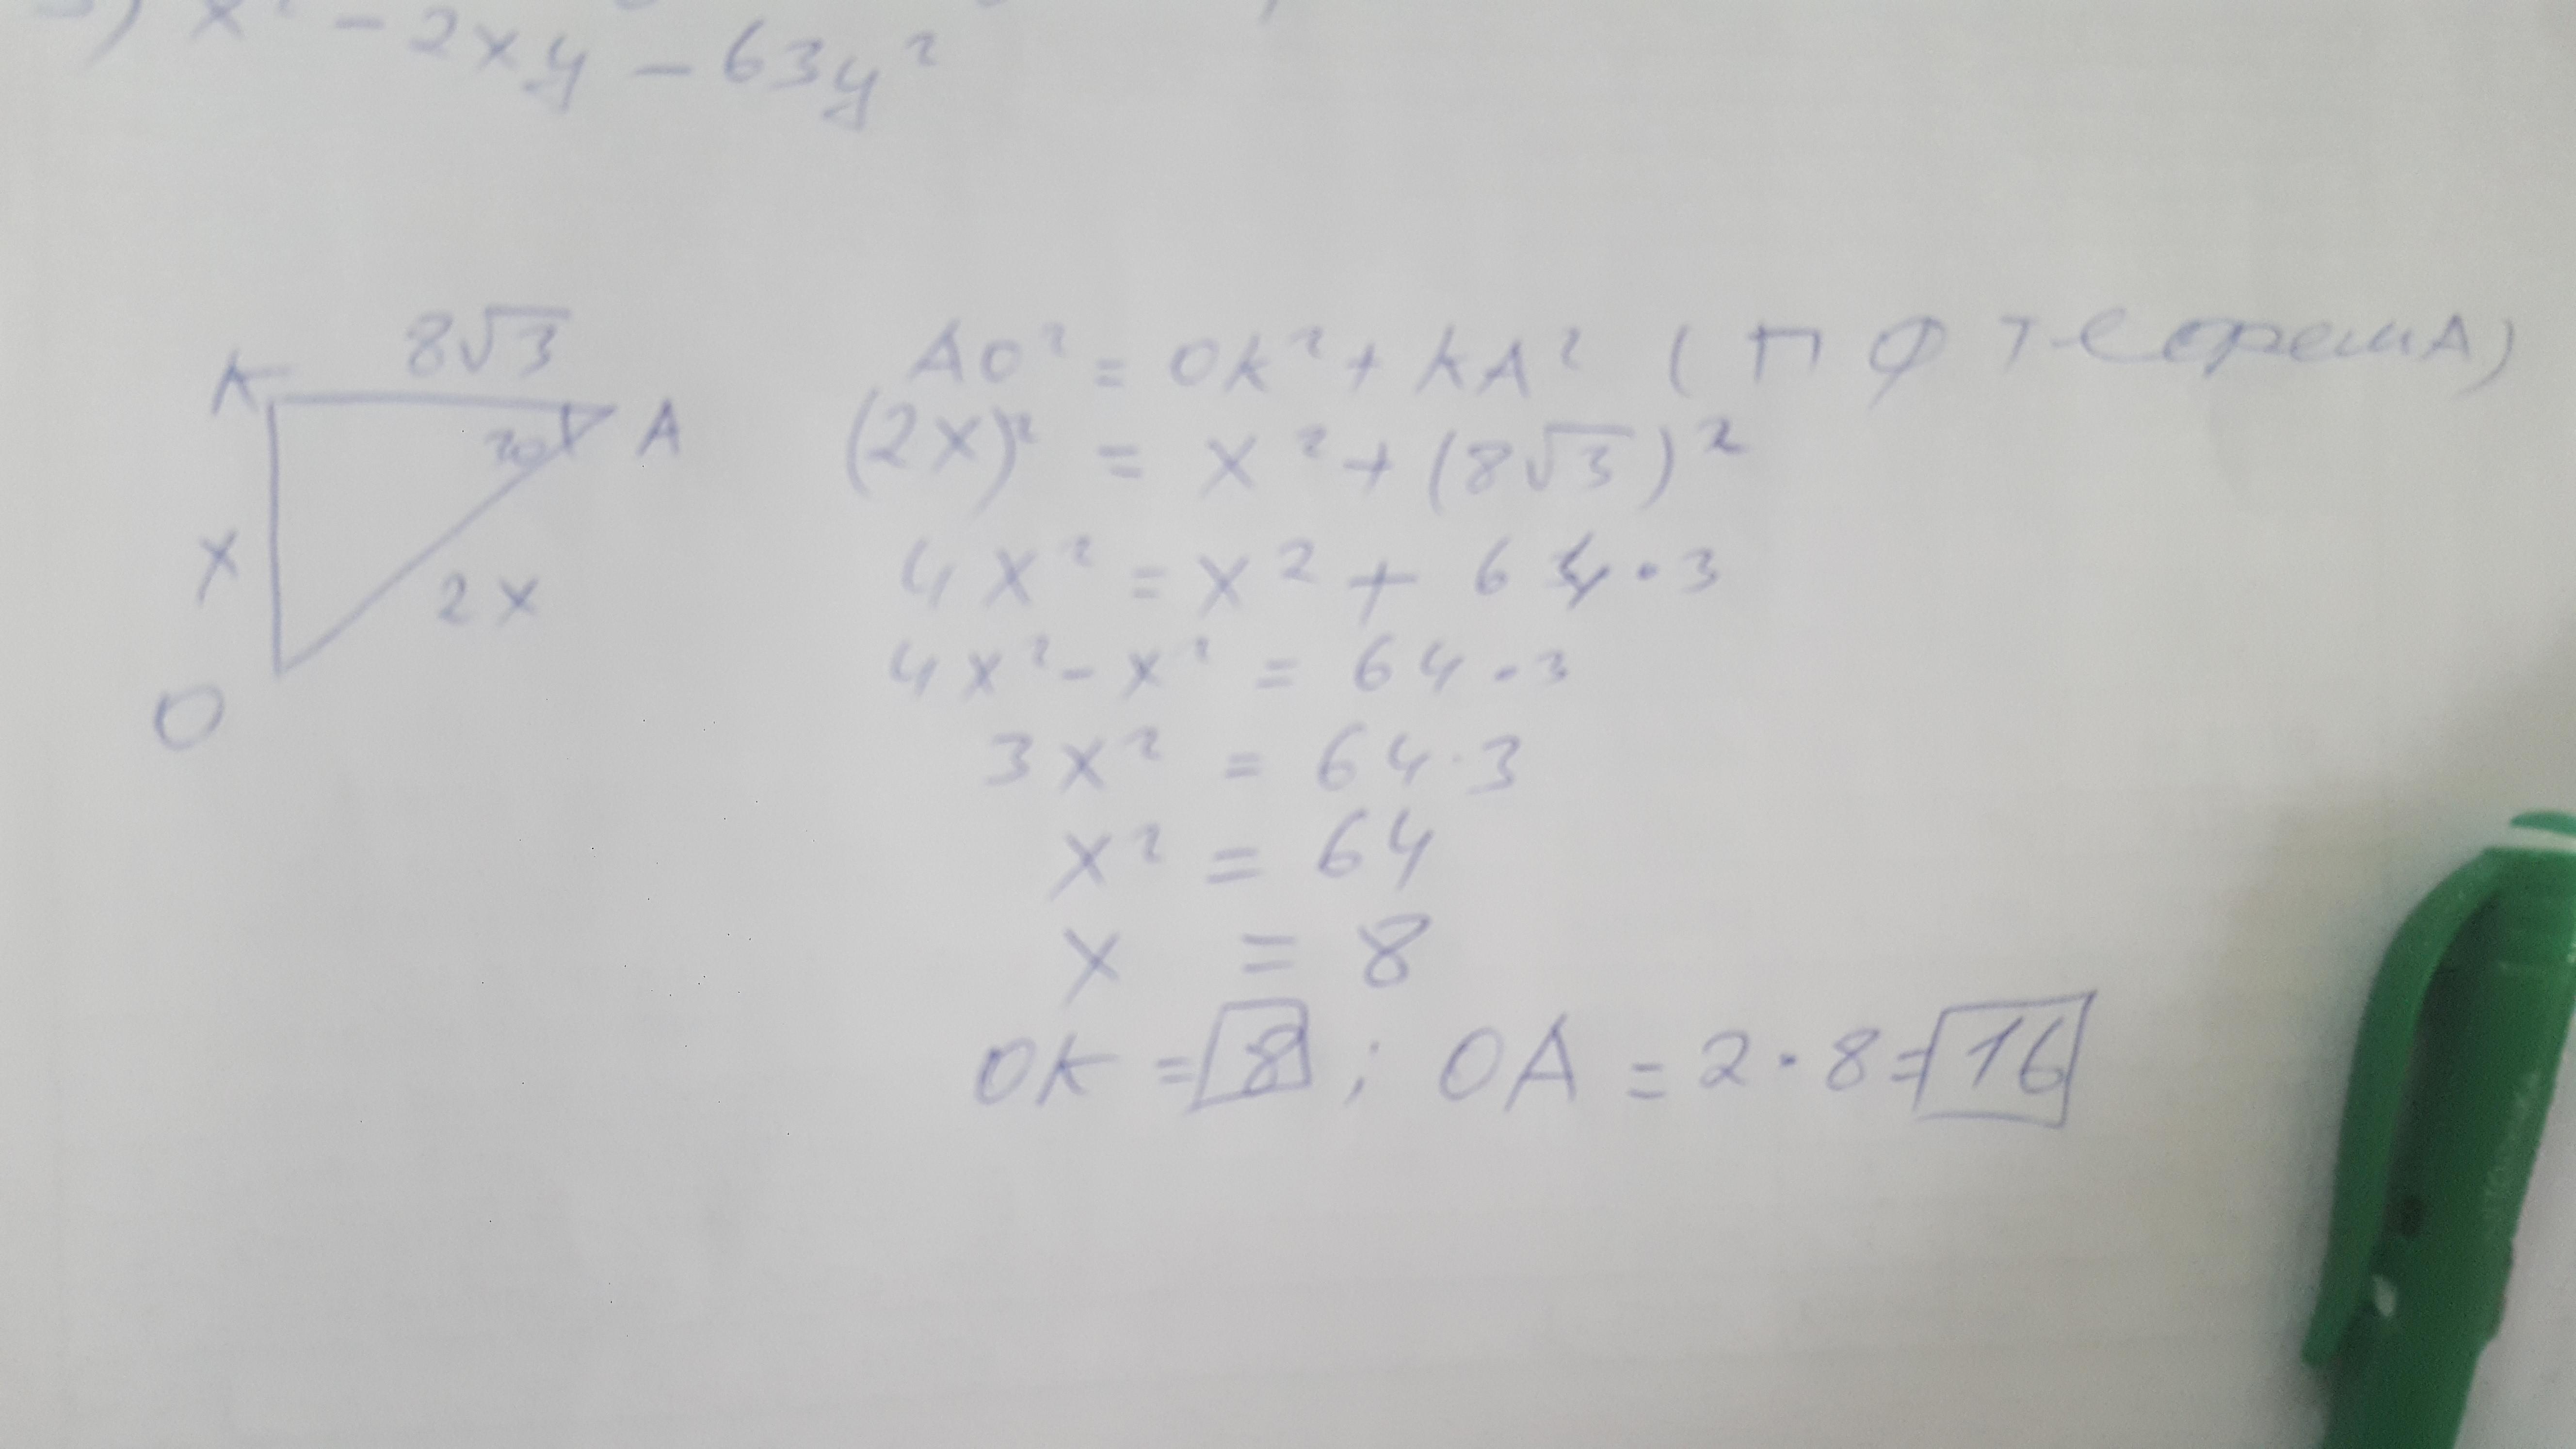 x² - 2xy - 63y²
8√3
K
A
30
x
2x
O
AO² = OK² + KA² (ПФ теоремA)
(2x)² = x² + (8√3)²
4x² = x² + 64·3
4x² - x² = 64·3
3x² = 64·3
x² = 64
x = 8
OK = 8 ; OA = 2·8 = 16